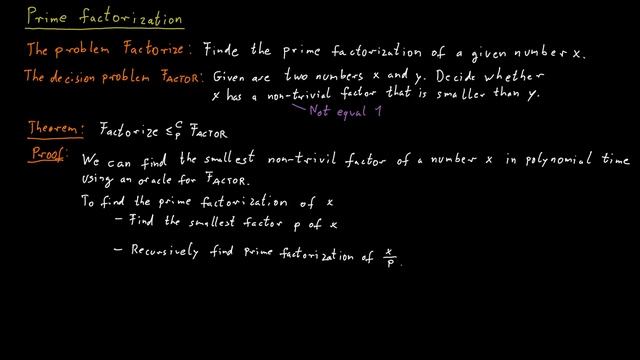 Prime factorization
The problem Factorize: Finde the prime factorization of a given number x.
The decision problem FACTOR: Given are two numbers x and y. Decide whether
x has a non-trivial factor that is smaller than y.
Not equal 1
Theorem: Factorize ≤ᶜₚ FACTOR
Proof: We can find the smallest non-trivil factor of a number x in polynomial time
using an oracle for FACTOR.
To find the prime factorization of x
- Find the smallest factor p of x
- Recursively find prime factorization of x/p.